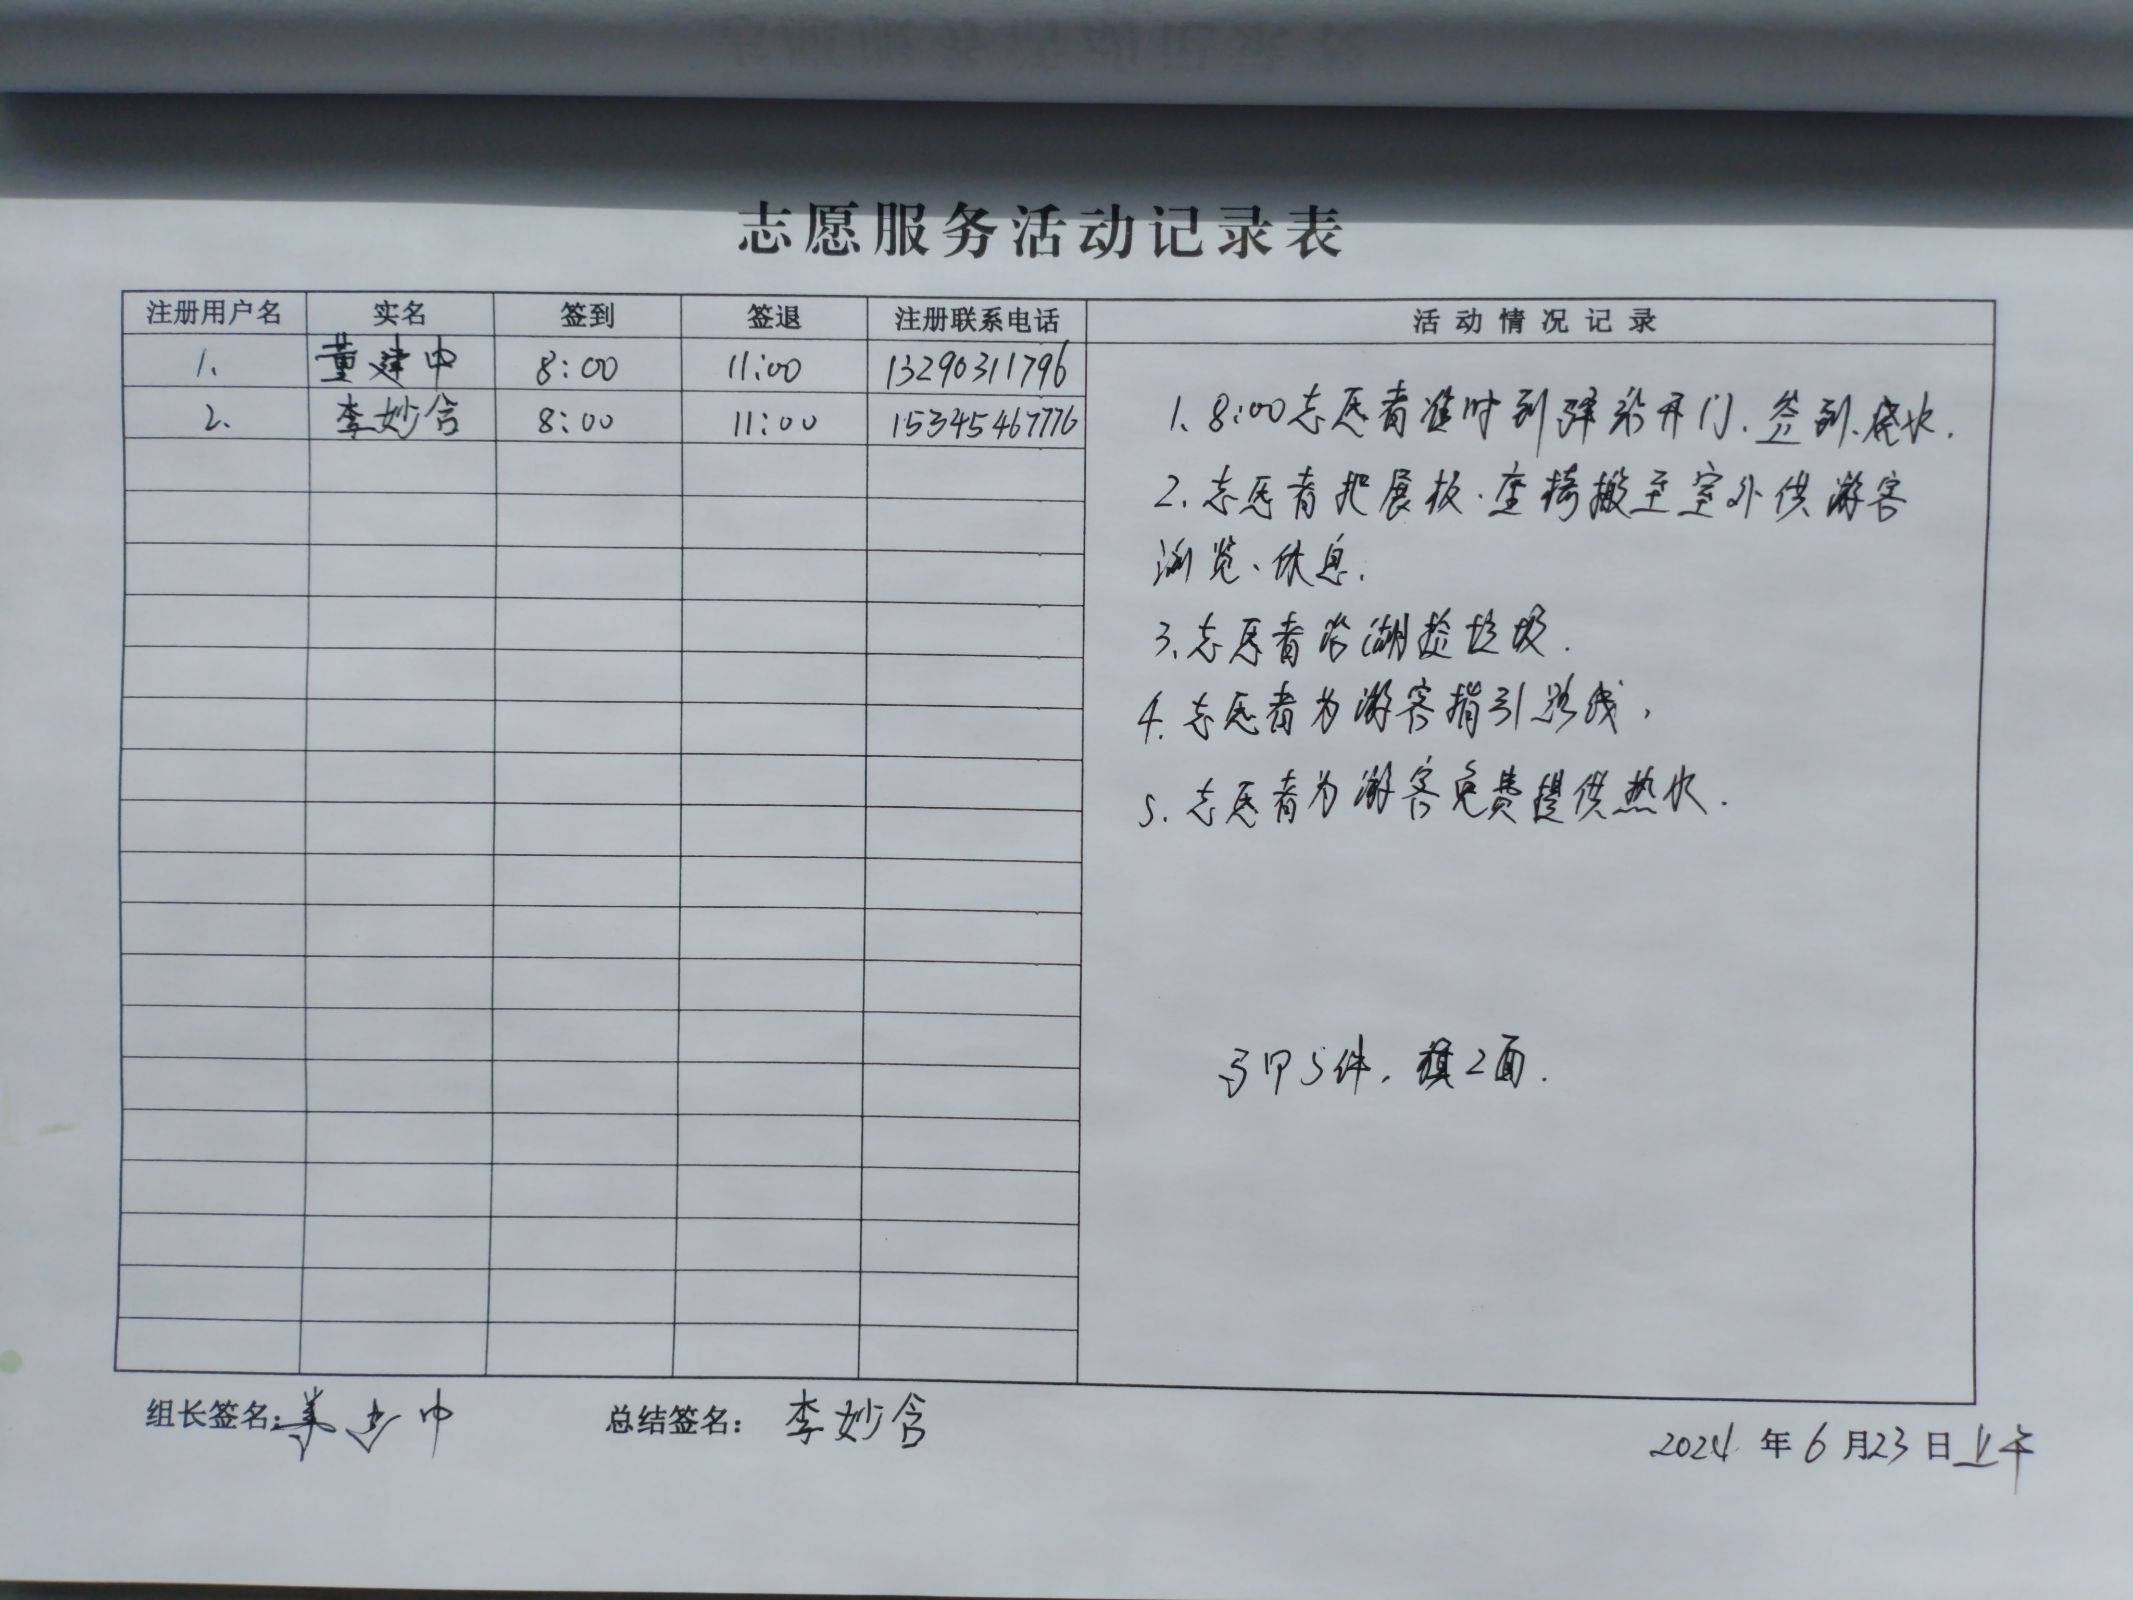 志愿服务活动记录表
注册用户名 实名 签到 签退 注册联系电话 活动情况记录
1. 董建中 8:00 11:00 13290311796
2. 李妙含 8:00 11:00 15345467776
1. 8:00志愿者准时到驿站开门、签到、烧水.
2. 志愿者把展板、座椅搬至室外供游客
浏览、休息.
3. 志愿者沿湖捡垃圾.
4. 志愿者为游客指引路线,
5. 志愿者为游客免费提供热水.
马甲5件, 旗2面.
组长签名: 总结签名: 李妙含
2024年6月23日上午